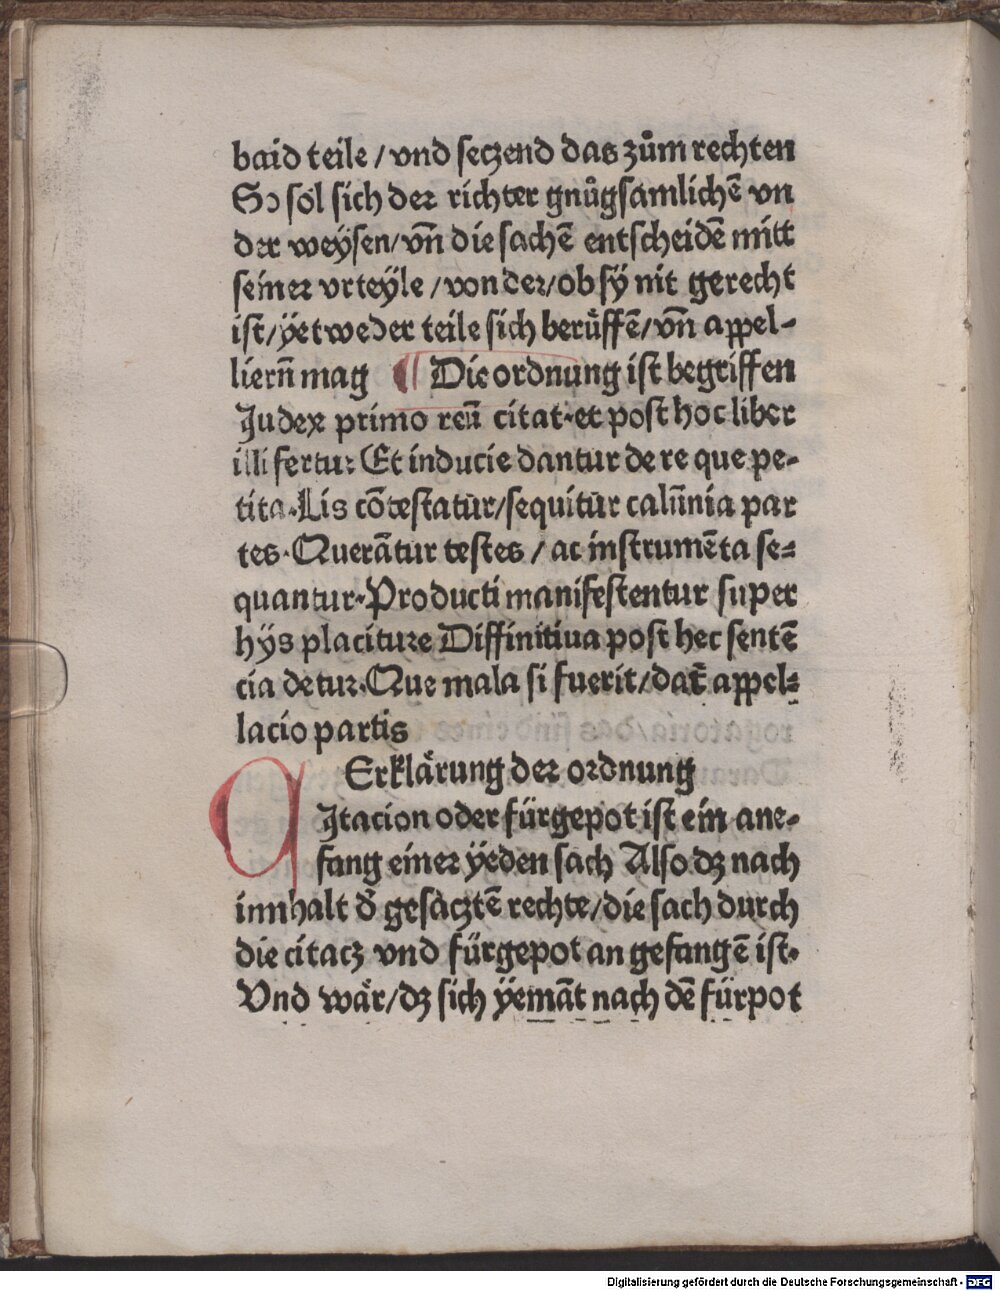 baid teile / vnd seczend das zům rechten
So sol sich der richter gnůgsamlichē vn
der weysen/vn̄ die sachē entscheidē mitt
seiner vrteÿle /von der/ob sÿ nit gerecht
ist/ÿetweder teile sich berůffē/vn̄ appel-
liern̄ mag ¶ Die ordnung ist begriffen
Judex primo reū citat·et post hoc liber
illi fertur Et inducie dantur de re que pe-
tita·Lis cōtestatūr/sequitūr calūnia par
tes·Querātur testes / ac instrumēta se-
quantur·Producti manifestentur super
hÿs placiture Diffinitiua post hec sentē
cia detur·Que mala si fuerit/dat̄ appel-
lacio partis
Erklärung der ordnung
CJtacion oder fürgepot ist ein ane-
fang einer ÿeden sach Also dz nach
innhalt d̄ gesäcztē rechte/die sach durch
die citacz vnd fürgepot an gefangē ist·
Vnd wär/dz sich ÿemāt nach dē fürpot
Digitalisierung gefördert durch die Deutsche Forschungsgemeinschaft - DFG